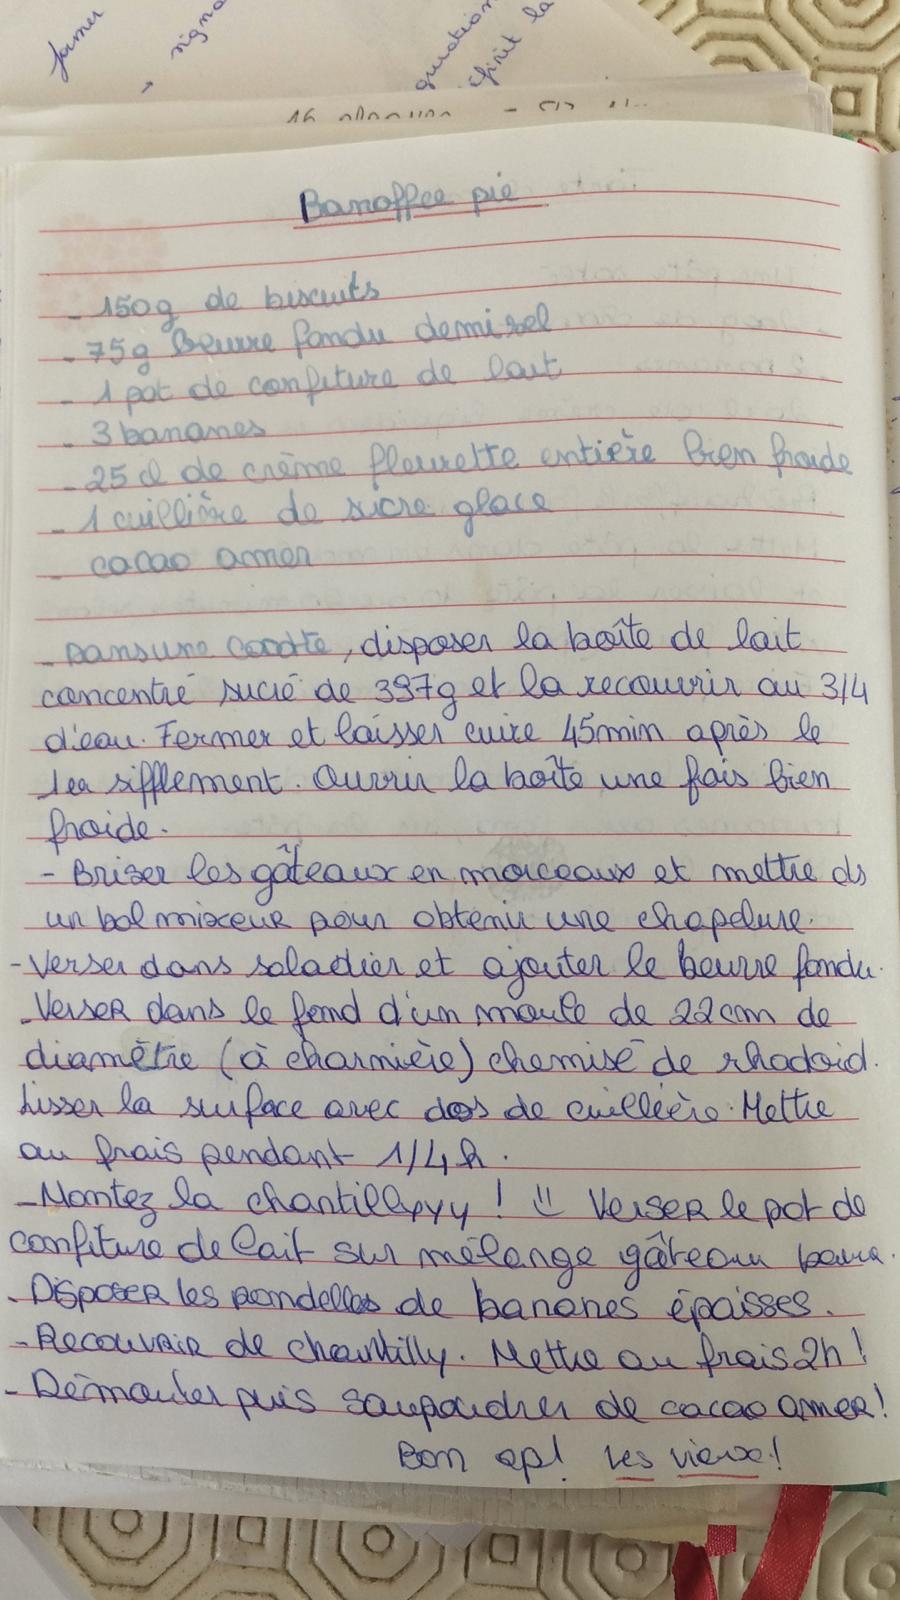 former
signa
quration
finit la
Banoffee pie
- 150g de biscuits
- 75g beurre fondu demisel
- 1 pot de confiture de lait
- 3 bananes
- 25 cl de crème fleurette entière bien froide
- 1 cuillière de sucre glace
- cacao amer
- Dans une cocotte, disposer la boîte de lait
concentré sucré de 397g et la recouvrir au 3/4
d'eau. Fermer et laisser cuire 45min après le
1er sifflement. Ouvrir la boîte une fois bien
froide.
- Briser les gâteaux en morceaux et mettre ds
un bol mixeur pour obtenir une chapelure.
- Verser dans saladier et ajouter le beurre fondu.
- Verser dans le fond d'un moule de 22cm de
diamètre (à charnière) chemisé de rhodoïd.
Lisser la surface avec dos de cuillère. Mettre
au frais pendant 1/4h.
- Montez la chantillyyy ! Verser le pot de
confiture de lait sur mélange gâteau beurre.
- Disposer les rondelles de bananes épaisses.
- Recouvrir de chantilly. Mettre au frais 2h !
- Démouler puis saupoudrer de cacao amer !
Bon ap! les vieux !